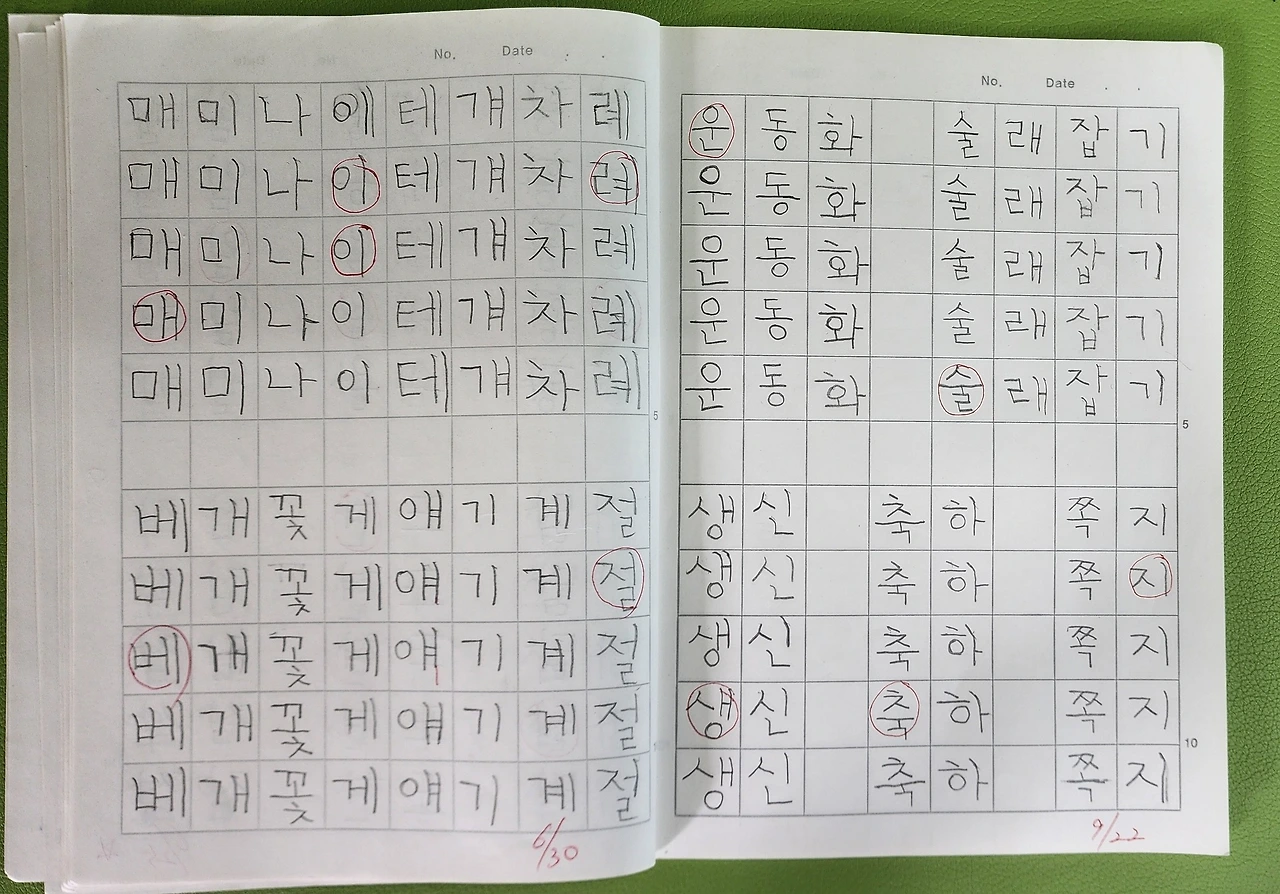 No. Date
매 미 나 에 테 걔 차 례
매 미 나 이 테 걔 차 례
매 미 나 이 테 걔 차 례
매 미 나 이 테 걔 차 례
매 미 나 이 테 걔 차 례
5
베 개 꽃 게 얘 기 계 절
베 개 꽃 게 얘 기 계 절
베 개 꽃 게 얘 기 계 절
베 개 꽃 게 얘 기 계 절
베 개 꽃 게 얘 기 계 절
6/30
No. Date
운 동 화 술 래 잡 기
운 동 화 술 래 잡 기
운 동 화 술 래 잡 기
운 동 화 술 래 잡 기
운 동 화 술 래 잡 기
5
생 신 축 하 쪽 지
생 신 축 하 쪽 지
생 신 축 하 쪽 지
생 신 축 하 쪽 지
10
생 신 축 하 쪽 지
9/22